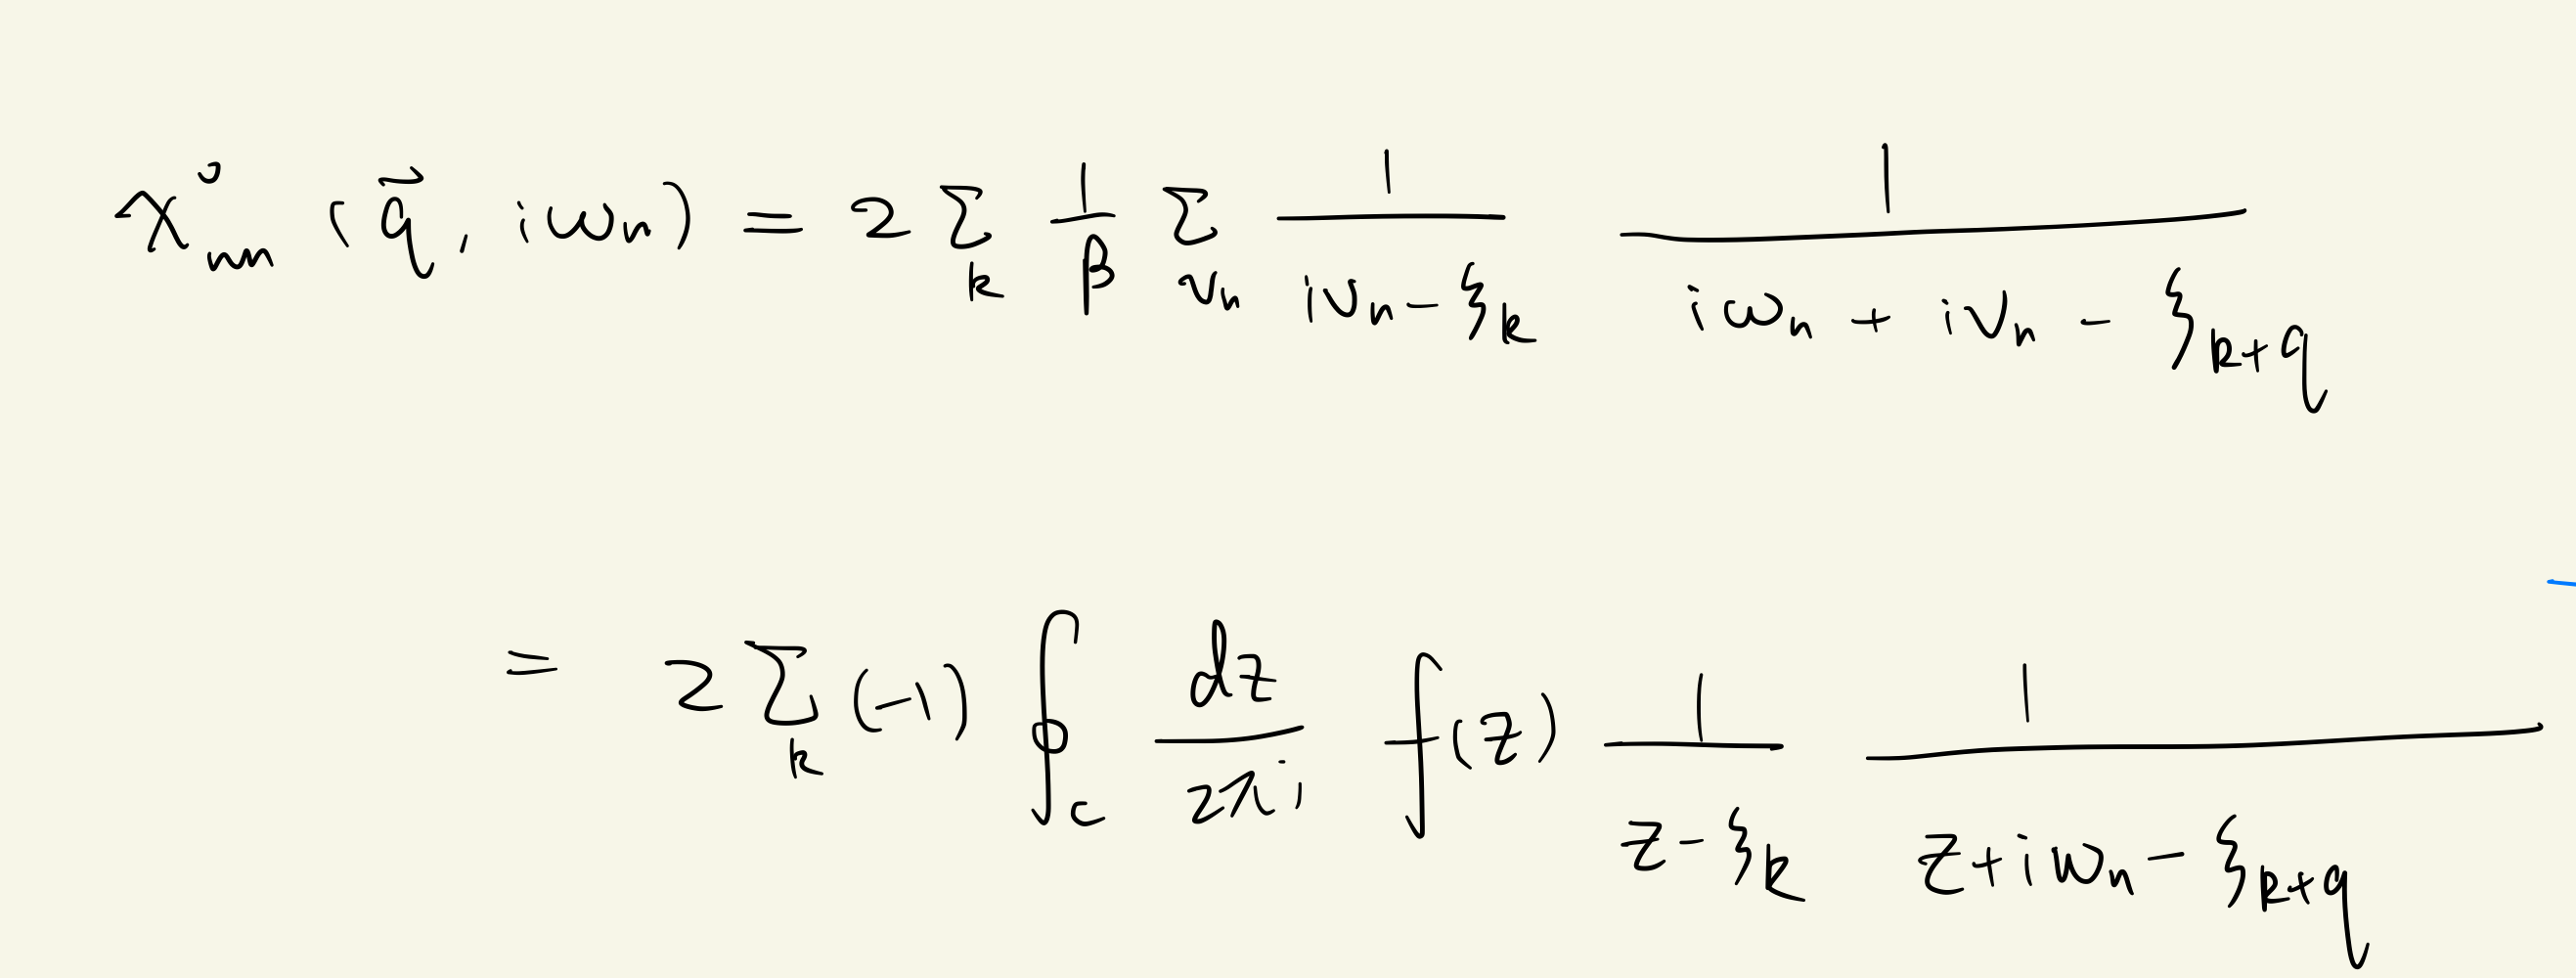 χ⁰ₙₙ (q⃗, iωₙ) = 2 Σ_k 1/β Σ_νₙ 1/(iνₙ - ξ_k) 1/(iωₙ + iνₙ - ξ_{k+q})
= 2 Σ_k (-1) ∮_c dz/2πi f(z) 1/(z - ξ_k) 1/(z + iωₙ - ξ_{k+q})